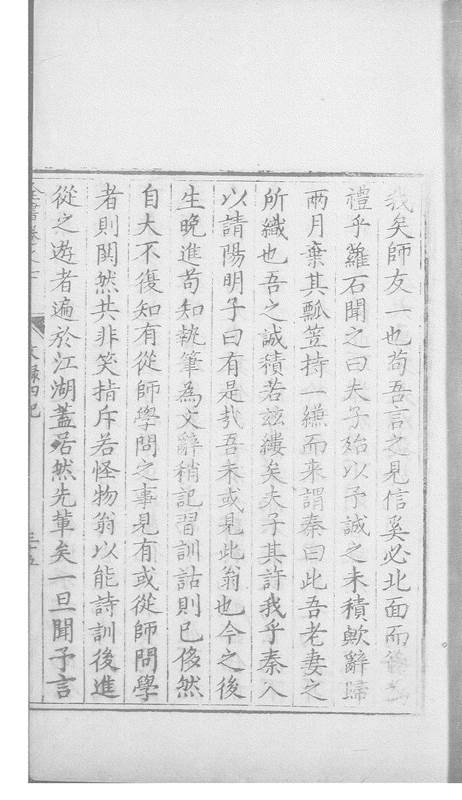 我矣師友一也苟吾言之見信奚必北面而後為
禮乎蘿石聞之曰夫子殆以予誠之未積歟辭歸
兩月棄其瓢笠持一縑而来謂秦曰此吾老妻之
所織也吾之誠積若玆縷矣夫子其許我乎秦入
以請陽明子曰有是㢤吾未或見此翁也今之後
生晚進苟知執筆為文辭稍記習訓詁則已侈然
自大不復知有從師學問之事見有或從師問學
者則閧然共非笑指斥若怪物翁以能詩訓後進
從之遊者遍於江湖蓋居然先輩矣一旦聞予言
全書卷之七
文錄四 記
三十五